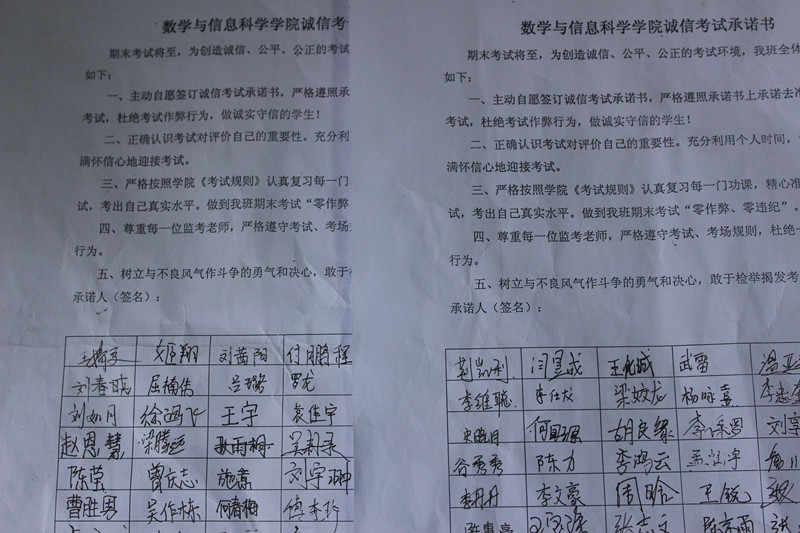 数学与信息科学学院诚信考
期末考试将至，为创造诚信、公平、公正的考试
如下：
一、主动自愿签订诚信考试承诺书，严格遵照承
考试，杜绝考试作弊行为，做诚实守信的学生！
二、正确认识考试对评价自己的重要性。充分利
满怀信心地迎接考试。
三、严格按照学院《考试规则》认真复习每一门
试，考出自己真实水平。做到我班期末考试“零作弊
四、尊重每一位监考老师，严格遵守考试、考场
行为。
五、树立与不良风气作斗争的勇气和决心，敢于
承诺人（签名）：
姬翔 刘茜阳 付月鹏程
刘春晓 屈楠伟 吕璐 罗龙
刘如月 王宇
赵思慧 梁腾远
陈荣 曾庆志 施熹 刘宇翀
曹胜男 吴作栋 何春梅
数学与信息科学学院诚信考试承诺书
期末考试将至，为创造诚信、公平、公正的考试环境，我班全体
如下：
一、主动自愿签订诚信考试承诺书，严格遵照承诺书上承诺去准
考试，杜绝考试作弊行为，做诚实守信的学生！
二、正确认识考试对评价自己的重要性。充分利用个人时间，
满怀信心地迎接考试。
三、严格按照学院《考试规则》认真复习每一门功课，精心准
试，考出自己真实水平。做到我班期末考试“零作弊、零违纪”。
四、尊重每一位监考老师，严格遵守考试、考场规则，杜绝一
行为。
五、树立与不良风气作斗争的勇气和决心，敢于检举揭发考
承诺人（签名）：
武雷
李维聪 李仕龙 梁姣龙 杨咏熹
胡良缘
谷秀秀 陈力 李鸿云
李丹丹 李文豪 周晗 王锐
张志文